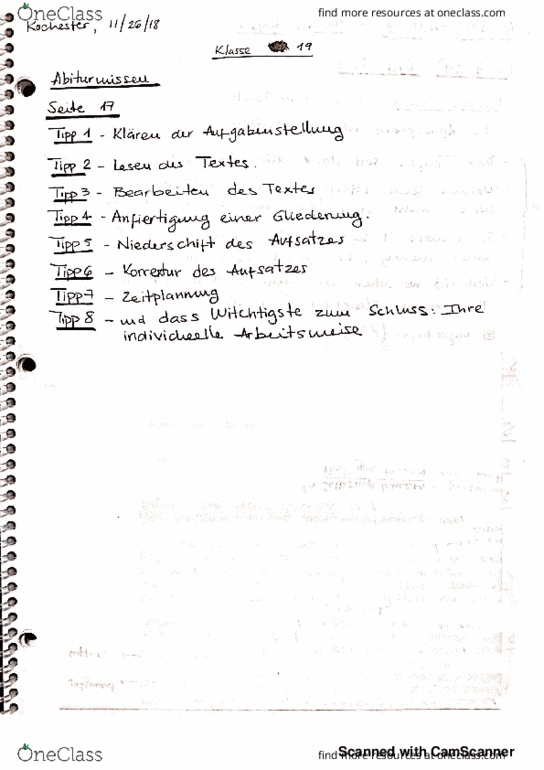 OneClass
find more resources at oneclass.com
Rochester, 11/26/18
Klasse 19
Abiturwissen
Seite 17
Tipp 1 - Klären der Aufgabenstellung
Tipp 2 - Lesen des Textes.
Tipp 3 - Bearbeiten des Textes
Tipp 4 - Anfertigung einer Gliederung.
Tipp 5 - Niederschift des Aufsatzes
Tipp 6 - Korrektur des Aufsatzes
Tipp 7 - Zeitplannung
Tipp 8 - und dass Witchtigste zum Schluss: Ihre
individuelle Arbeitsweise
OneClass
find more resources at oneclass.com
Scanned with CamScanner